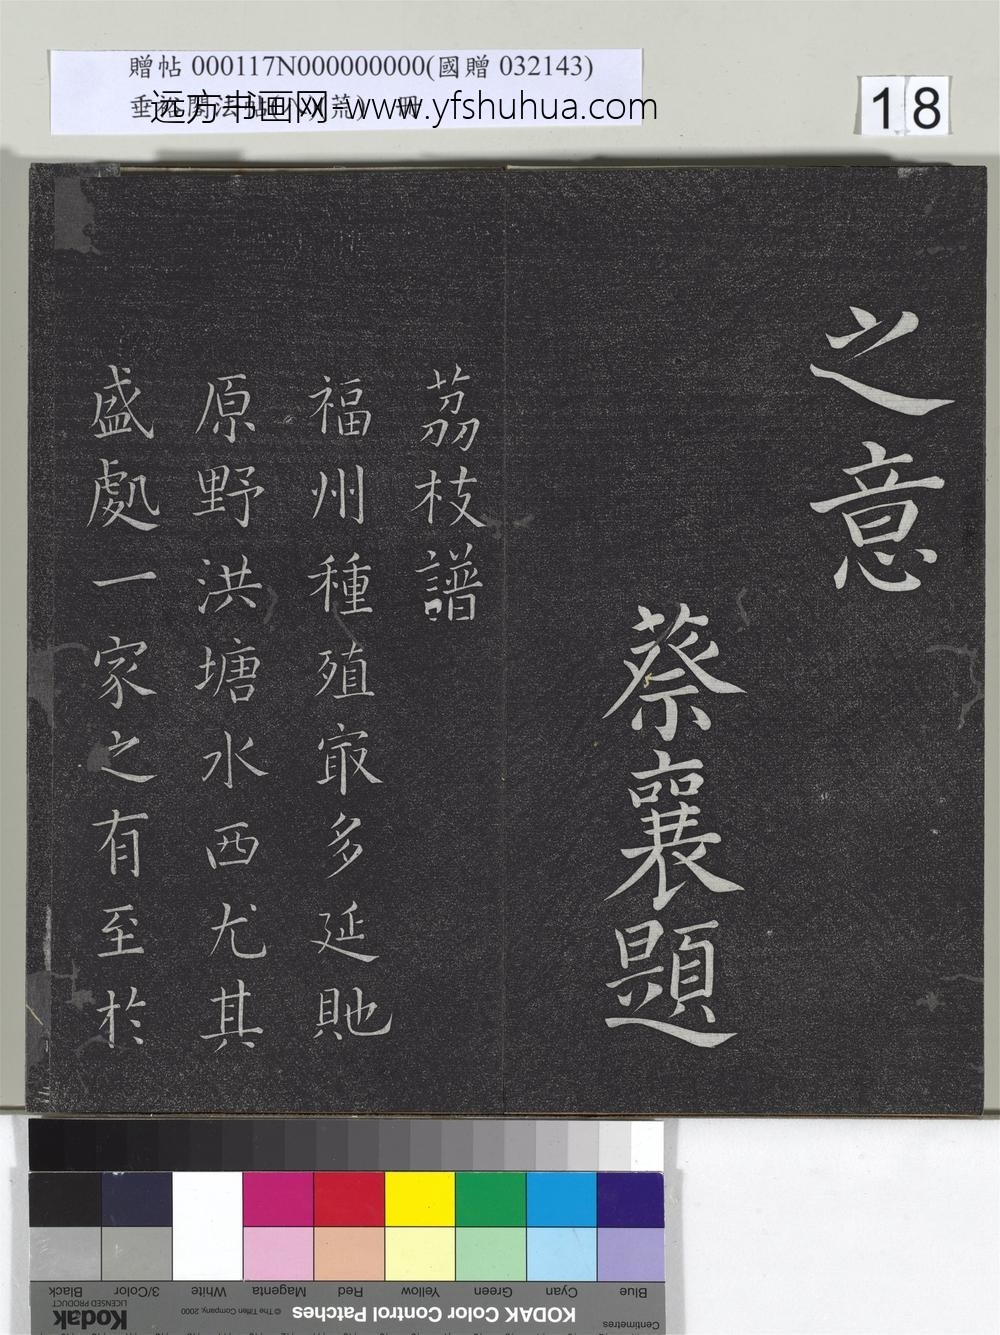 贈帖 000117N000000000(國贈 032143)
远方书画网-www.yfshuhua.com
18
之意
蔡襄題
茘枝譜
福州種殖冣多延貤
原野洪塘水西尤其
盛處一家之有至於
Blue
Cyan
Green
Yellow
Red
Magenta
White
3/Color
Black
Centimetres
KODAK Color Control Patches
© The Tiffen Company, 2000
Kodak
LICENSED PRODUCT